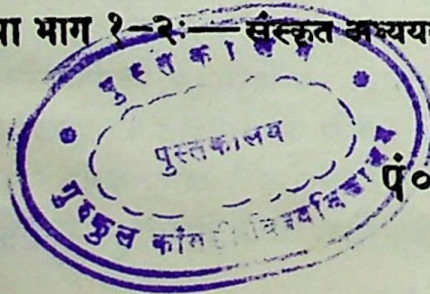 पा भाग १-२:— संस्कृत अध्ययन
पुस्तकालय
पुस्तकालय
गुरुकुल कांगड़ी विश्वविद्यालय
पं०